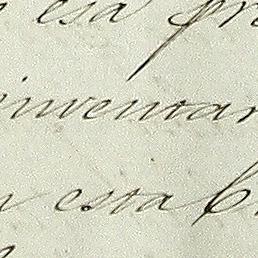 esa pr
inventar
esta C